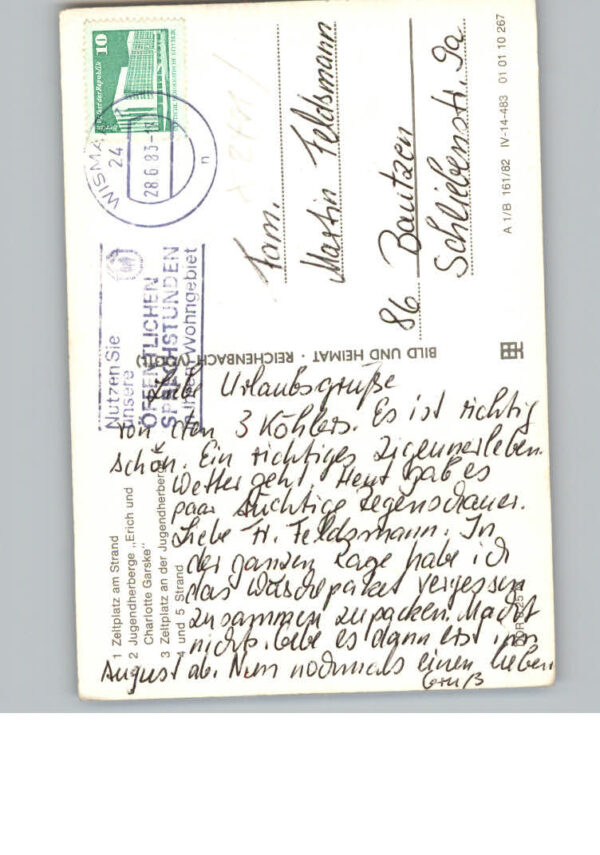 Liebe Urlaubsgrüße
von den 3 Köhlers. Es ist richtig
schön. Ein richtiges Zigeunerleben.
Wetter geht. Heut gab es
paar tüchtige Regenschauer.
Liebe Fr. Feldsmann. In
der ganzen Rage habe ich
das Wäschepaket vergessen
zusammen zupacken. Macht
nichts. Gebe es dann erst im
August ab. Nun nochmals einen lieben
Gruß
Fam.
Martin Feldsmann
86 Bautzen
Schliebenstr. 9a
10
WISMAR
24
28.6.83
n
Nutzen Sie
unsere
ÖFFENTLICHEN
SPRECHSTUNDEN
in Ihrem Wohngebiet
BILD UND HEIMAT · REICHENBACH (VOGTL)
A 1/B 161/82 IV-14-483 01 01 10 267
1 Zeltplatz am Strand
2 Jugendherberge „Erich und
Charlotte Garske"
3 Zeltplatz an der Jugendherberge
4 und 5 Strand